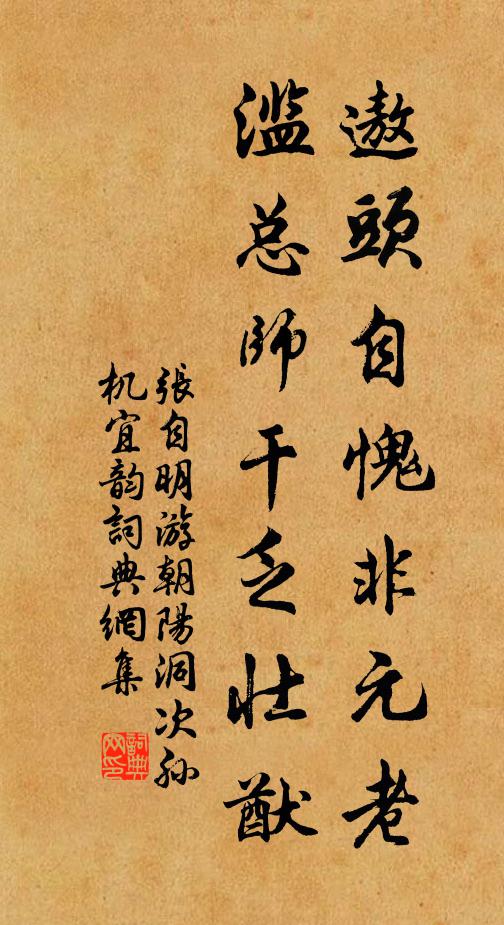 遨頭自愧非元老
滥总師干乏壮猷
張自明游朝陽洞次孙
机宜韵詞典網集
詞典網印